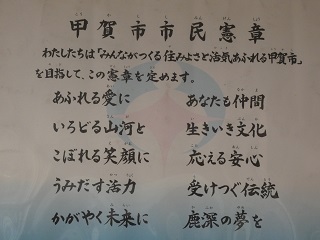 甲賀市市民憲章
わたしたちは「みんながつくる住みよさと活気あふれる甲賀市」
を目指して、この憲章を定めます。
あふれる愛に あなたも仲間
いろどる山河と 生きいき文化
こぼれる笑顔に 応える安心
うみだす活力 受けつぐ伝統
かがやく未来に 鹿深の夢を